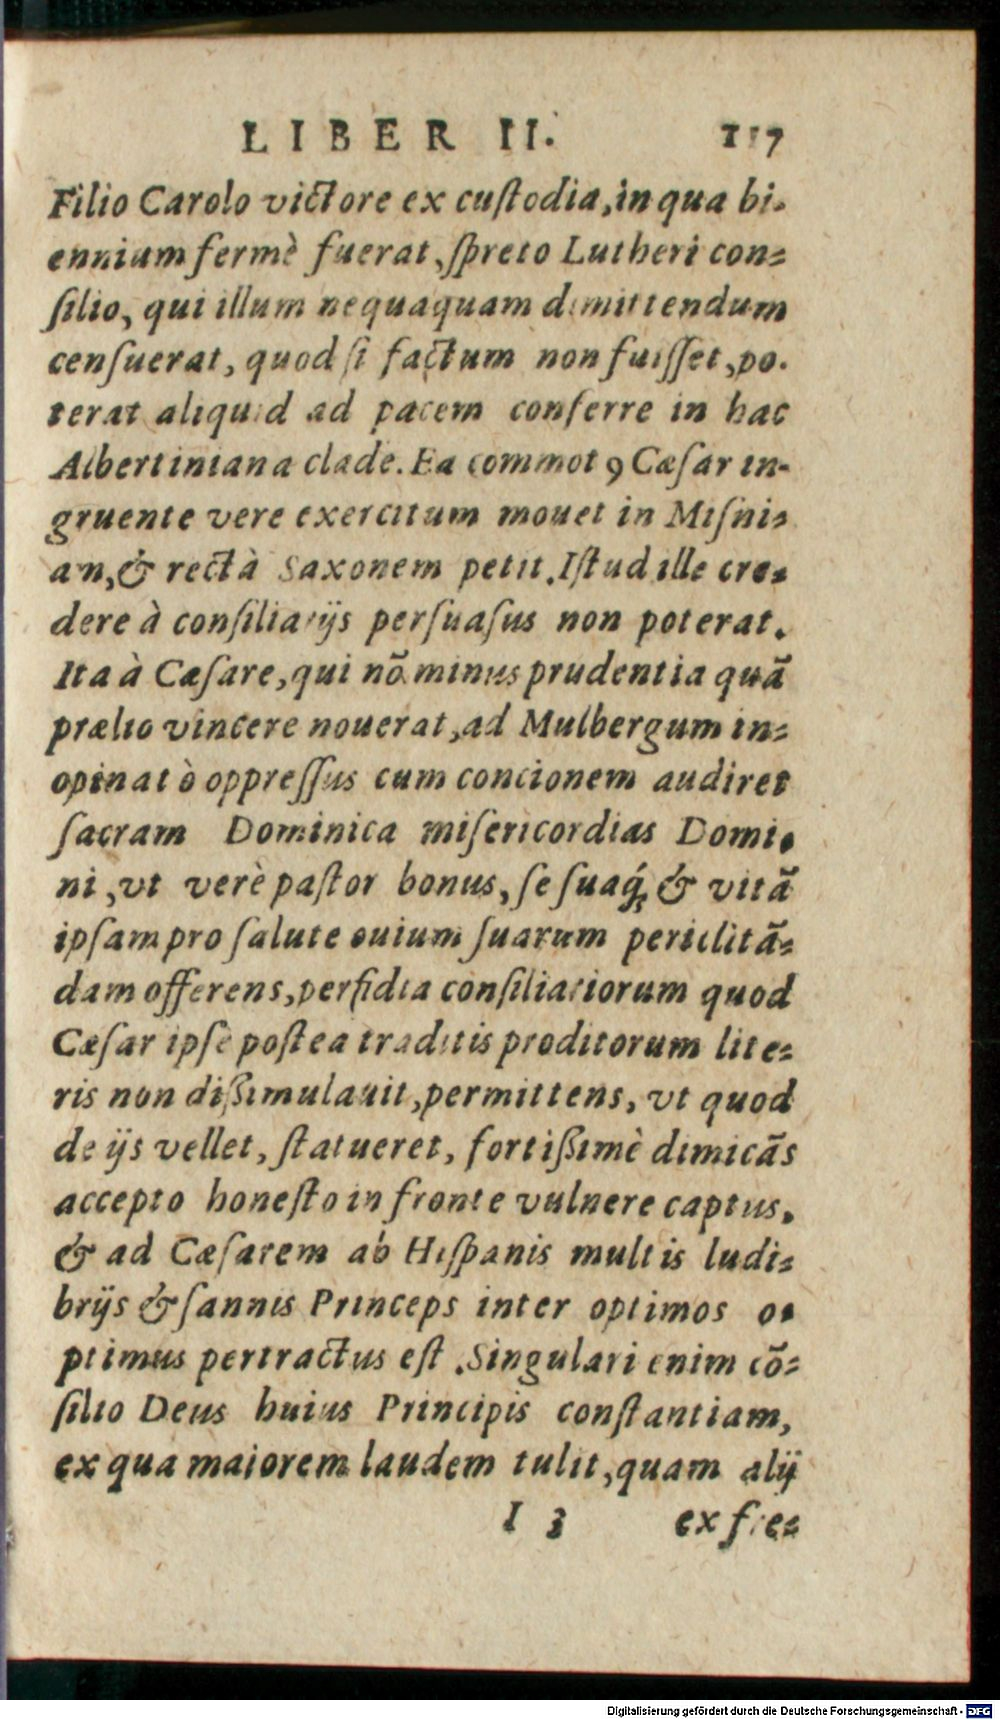 LIBER II. 117
Filio Carolo victore ex cuſtodia, in qua bi-
ennium fermè fuerat, ſpreto Lutheri con-
ſilio, qui illum nequaquam dimittendum
cenſuerat, quod ſi factum non fuiſſet, po-
terat aliquid ad pacem conferre in hac
Albertiniana clade. Ea commotꝰ Cæſar in-
gruente vere exercitum mouet in Miſni-
am, & rectà Saxonem petit. Iſtud ille cre-
dere à conſiliarijs perſuaſus non poterat.
Ita à Cæſare, qui nõ minus prudentia quã
prælio vincere nouerat, ad Mulbergum in-
opinatò oppreſſus cum concionem audiret
ſacram Dominica miſericordias Domi-
ni, vt verè paſtor bonus, ſe ſuaq́; & vitã
ipſam pro ſalute ouium ſuarum periclitã-
dam offerens, perfidia conſiliariorum quod
Cæſar ipſe poſtea traditis proditorum lite-
ris non dißimulauit, permittens, vt quod
de ijs vellet, ſtatueret, fortißimè dimicãs
accepto honeſto in fronte vulnere captus,
& ad Cæſarem ab Hiſpanis multis ludi-
brijs & ſannis Princeps inter optimos o-
ptimus pertractus eſt. Singulari enim cõ-
ſilio Deus huius Principis conſtantiam,
ex qua maiorem laudem tulit, quam alij
I 3 ex fre-
Digitalisierung gefördert durch die Deutsche Forschungsgemeinschaft - DFG